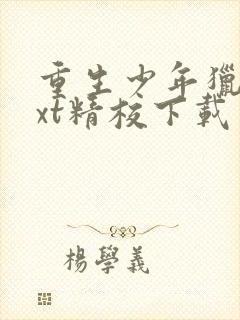 重生少年獵
xt精校下載
楊學義